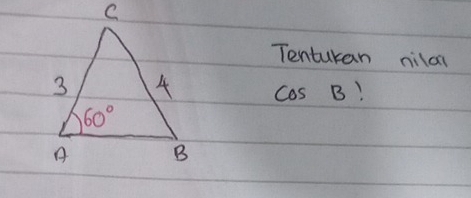 C
Tentukan nilai
3 4 Cos B!
60°
A B